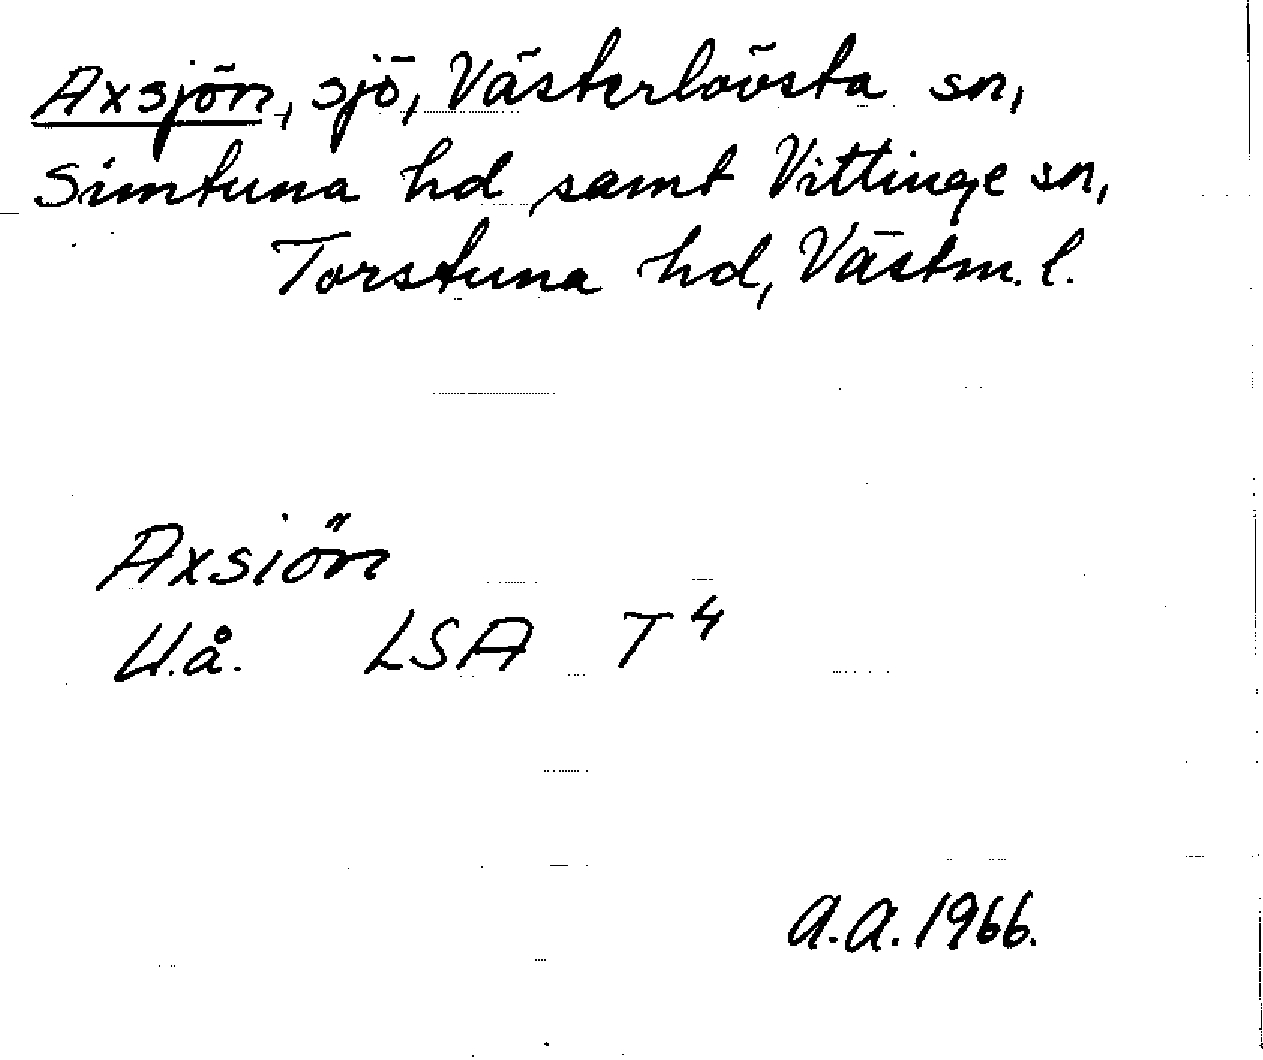 Axsjön, sjö, Västerlövsta sn,
Simtuna hd samt Vittinge sn,
Torstuna hd, Västm. l.
Axsiön
U.å. LSA T⁴
A.A. 1966.